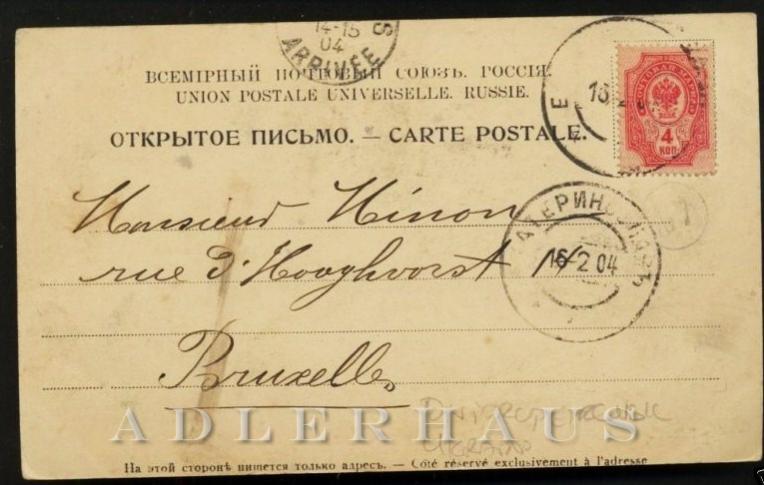 14-15
04
ARRIVÉE
ВСЕМІРНЫЙ ПОЧТОВЫЙ СОЮЗЪ. РОССІЯ.
UNION POSTALE UNIVERSELLE. RUSSIE.
ОТКРЫТОЕ ПИСЬМО. — CARTE POSTALE.
4
КОП.
Monsieur Hinon
rue d'Hooghvorst
ЕКАТЕРИНОСЛАВЪ
16-2 04
Bruxelles
ADLERHAUS
Ukraine
На этой сторонѣ пишется только адресъ. — Côté réservé exclusivement à l'adresse